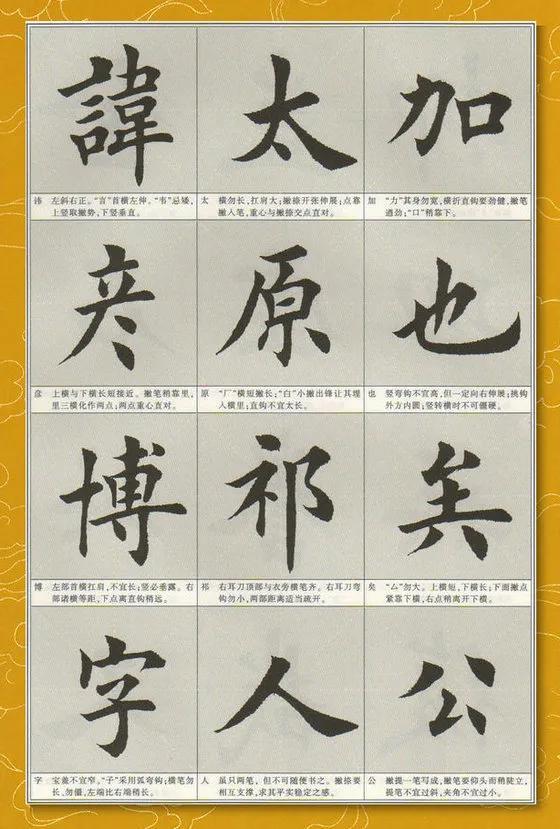 諱
讳 左斜右正。“言”首横左伸。“韦”忌矮，
上竖取撇势，下竖垂直。
太
太 横勿长，扛肩大；撇捺开张伸展；点靠
撇入笔，重心与撇捺交点直对。
加
加 “力”其身勿宽，横折直钩要劲健，撇笔
遒劲；“口”稍靠下。
彦
彦 上横与下横长短接近。撇笔稍靠里，
里三横化作两点；两点重心直对。
原
原 “厂”横短撇长；“白”小撇出锋让其埋
入横里；直钩不宜太长。
也
也 竖弯钩不宜高，但一定向右伸展；挑钩
外方内圆；竖转横时不可僵硬。
博
博 左部首横扛肩，不宜长；竖必垂露。右
部诸横等距，下点离直钩稍远。
祁
祁 右耳刀顶部与衣旁横笔齐。右耳刀弯
钩勿小，两部距离适当疏开。
矣
矣 “厶”勿大。上横短，下横长；下面撇点
紧靠下横，右点稍离开下横。
字
字 宝盖不宜窄。“子”采用弧弯钩；横笔勿
长、勿僵，左端比右端稍长。
人
人 虽只两笔，但不可随便书之。撇捺要
相互支撑，求其平实稳定之感。
公
公 撇提一笔写成，撇笔要仰头而稍陡立，
提笔不宜过斜，夹角不宜过小。